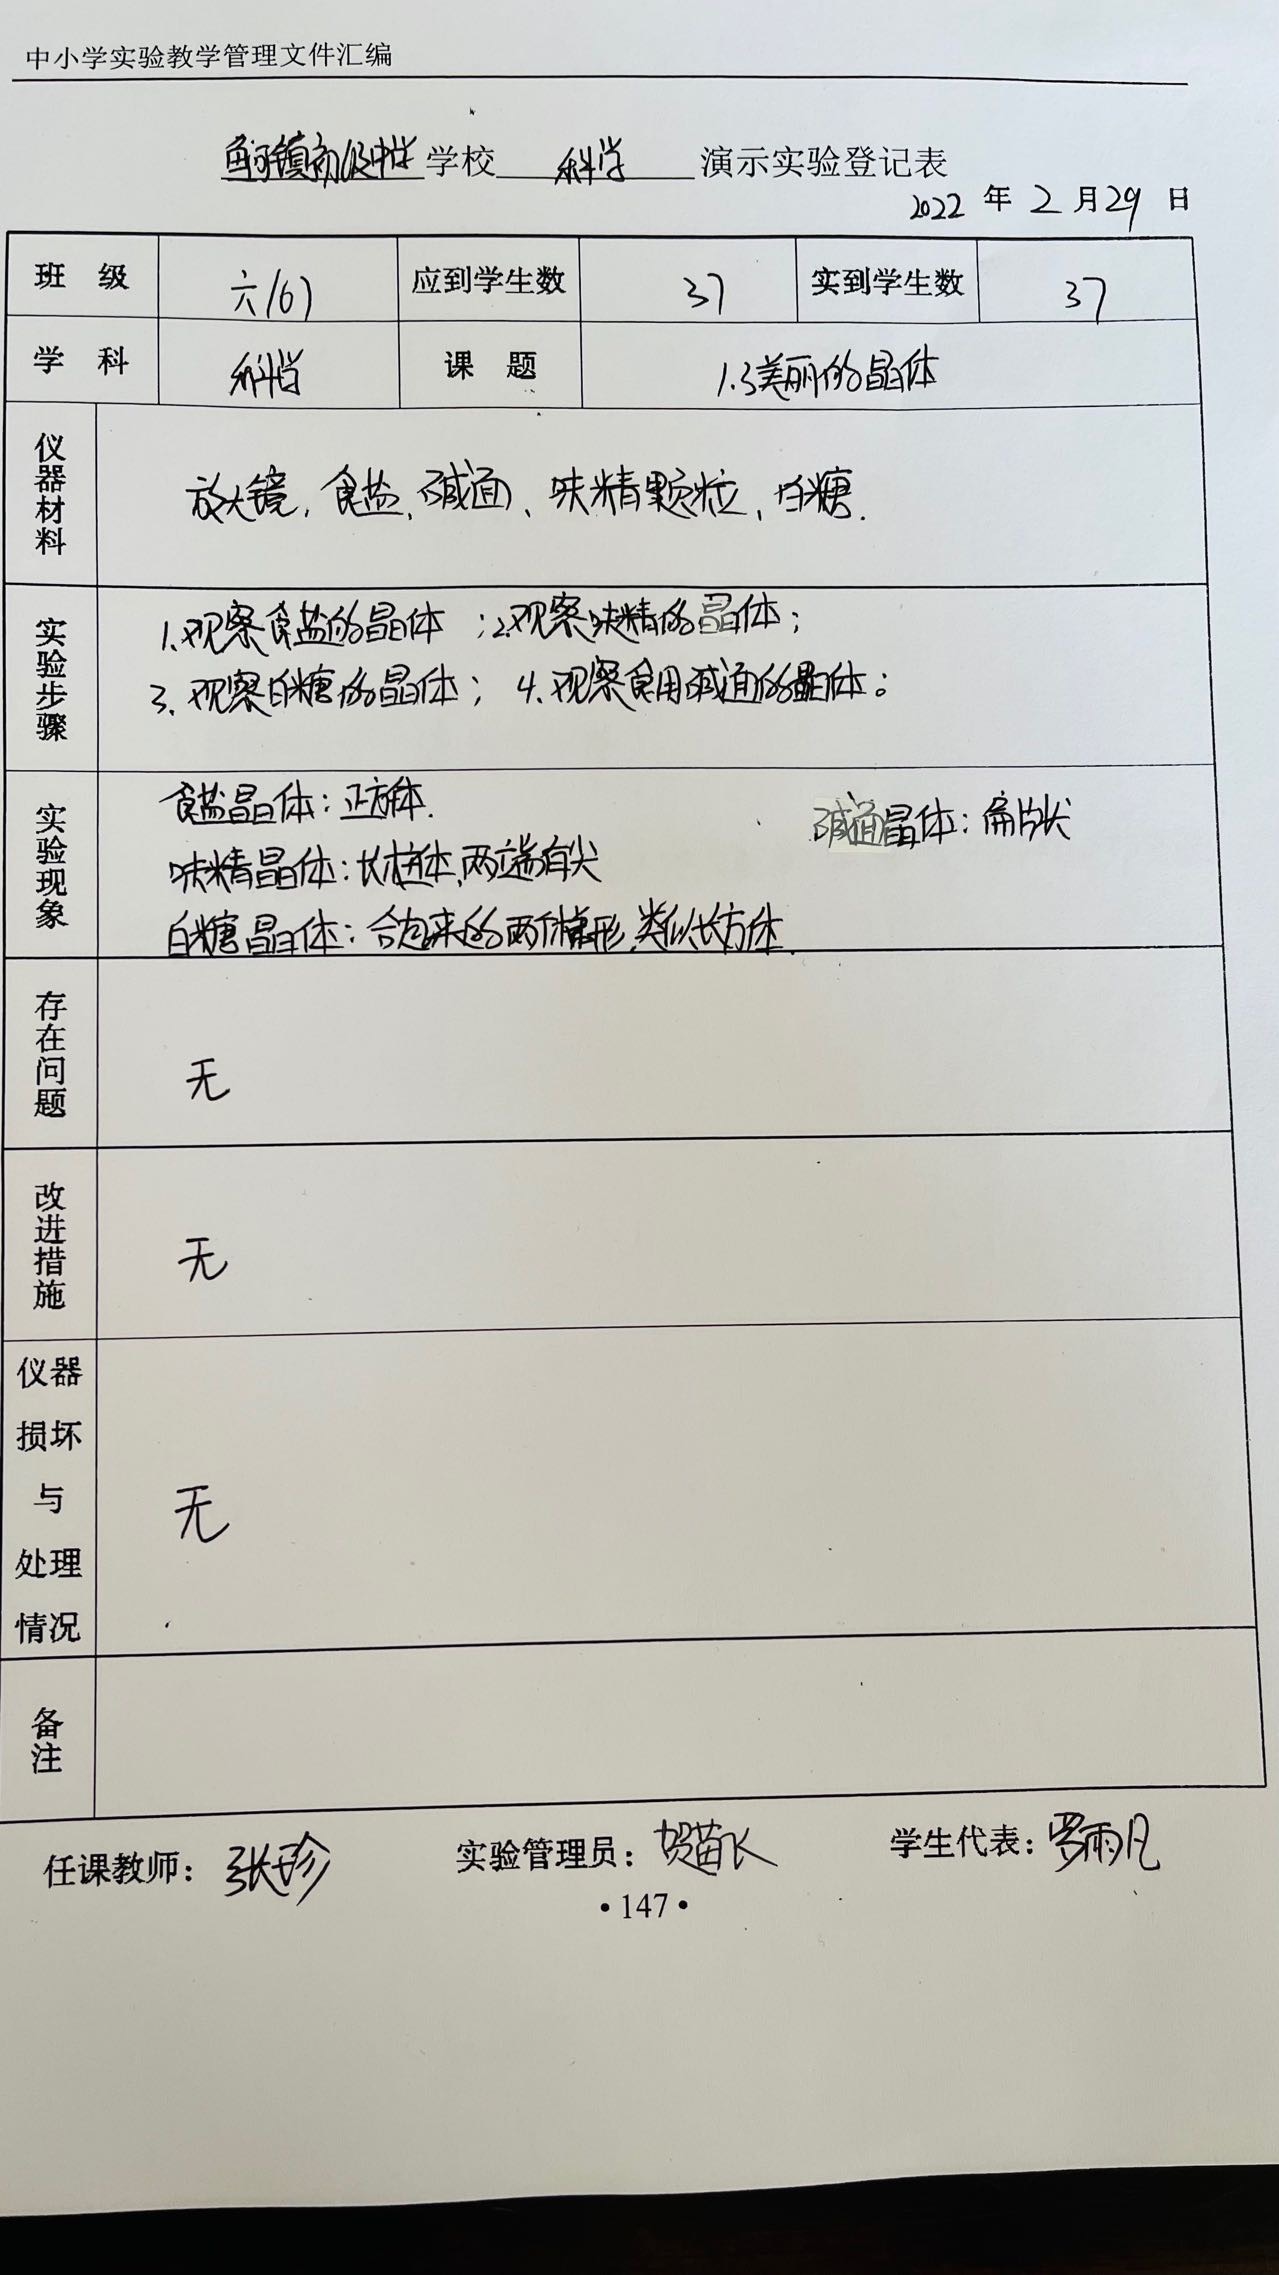 中小学实验教学管理文件汇编
鱼河镇初级中学 学校 科学 演示实验登记表
2022 年 2 月 29 日
班 级 六(6) 应到学生数 37 实到学生数 37
学 科 科学 课 题 1.3美丽的晶体
仪器材料
放大镜、食盐、碱面、味精颗粒、白糖.
实验步骤
1.观察食盐的晶体;2.观察味精的晶体;
3.观察白糖的晶体;4.观察食用碱面的晶体。
实验现象
食盐晶体:正方体. 碱面晶体:扁片状
味精晶体:长柱体,两端有尖
白糖晶体:合起来的两个梯形,类似长方体.
存在问题
无
改进措施
无
仪器
损坏
与
处理
情况
无
备注
任课教师:张珍 实验管理员:贺苗长 学生代表:罗雨凡
•147•